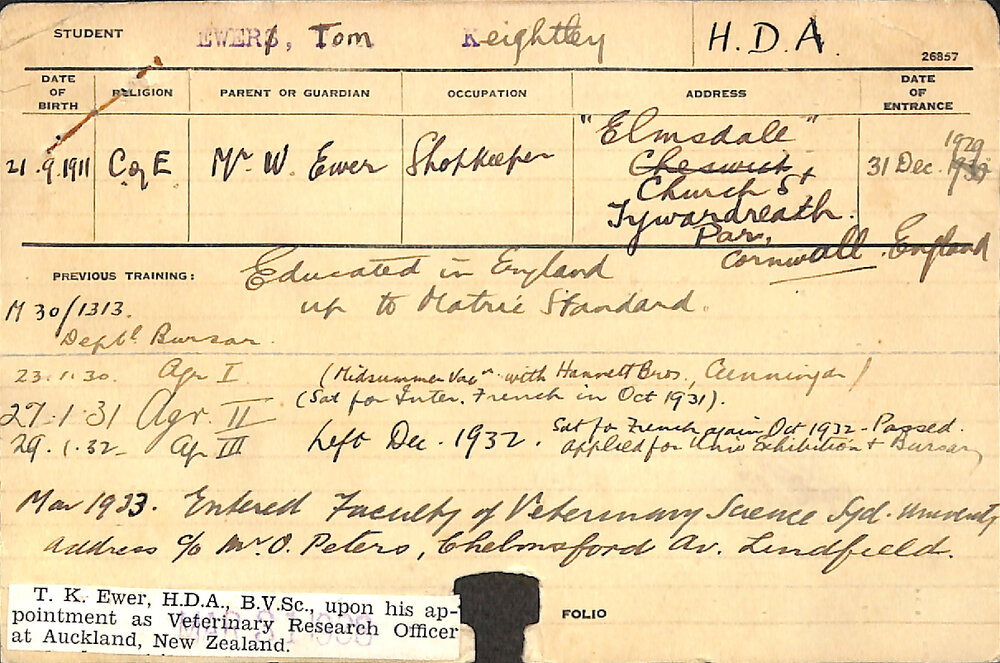 STUDENT EWERS, Tom Keightley H.D.A.
26857
DATE OF BIRTH RELIGION PARENT OR GUARDIAN OCCUPATION ADDRESS DATE OF ENTRANCE
21.9.1911 C of E Mr W. Ewer Shopkeeper "Elmsdale" 31 Dec. 1929 1930
Cheswick
Church St
Tywardreath.
Par,
Cornwall. England
PREVIOUS TRAINING: Educated in England
up to Matric Standard.
M 30/1313.
Deptl Bursar.
23.1.30. Agr I (Midsummer Vacn with Hannett Bros,
27.1.31 Agr. II (Sat for Inter. French in Oct 1931).
29.1.32. Agr III Left Dec. 1932. Sat for French again Oct 1932 - Passed.
applied for Univ Exhibition & Bursary
Mar 1933. Entered Faculty of Veterinary Science Syd. University
address c/o Mr. O. Peters, Chelmsford Av. Lindfield.
T. K. Ewer, H.D.A., B.V.Sc., upon his ap-
pointment as Veterinary Research Officer
at Auckland, New Zealand.
FOLIO